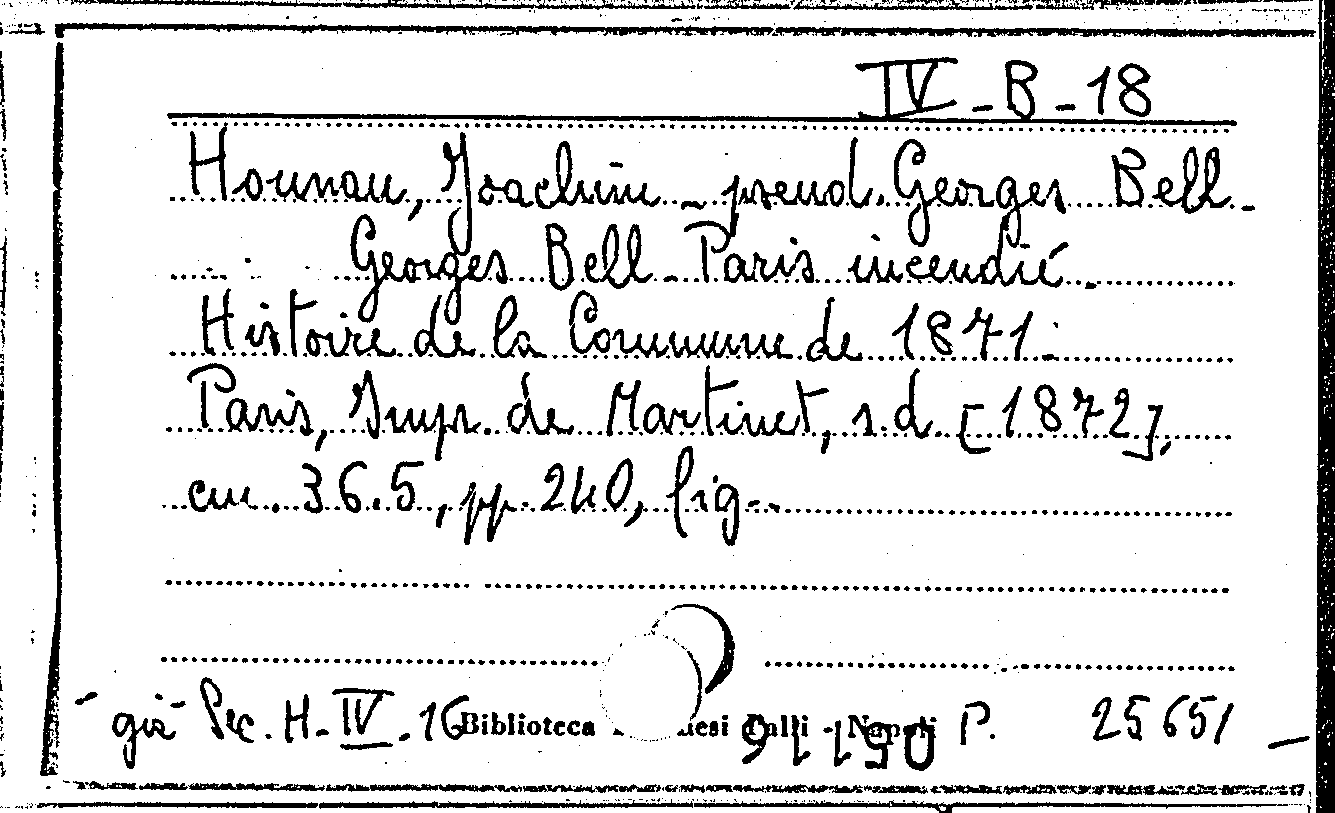 IV - B - 18
Hounau, Joachim - pseud. Georges Bell -
Georges Bell - Paris incendié.
Histoire de la Commune de 1871.
Paris, Impr. de Martinet, s.d. [1872],
cm. 36.5, pp. 240, fig..
già Sec. H - IV - 16 Biblioteca - Napoli P. 25651